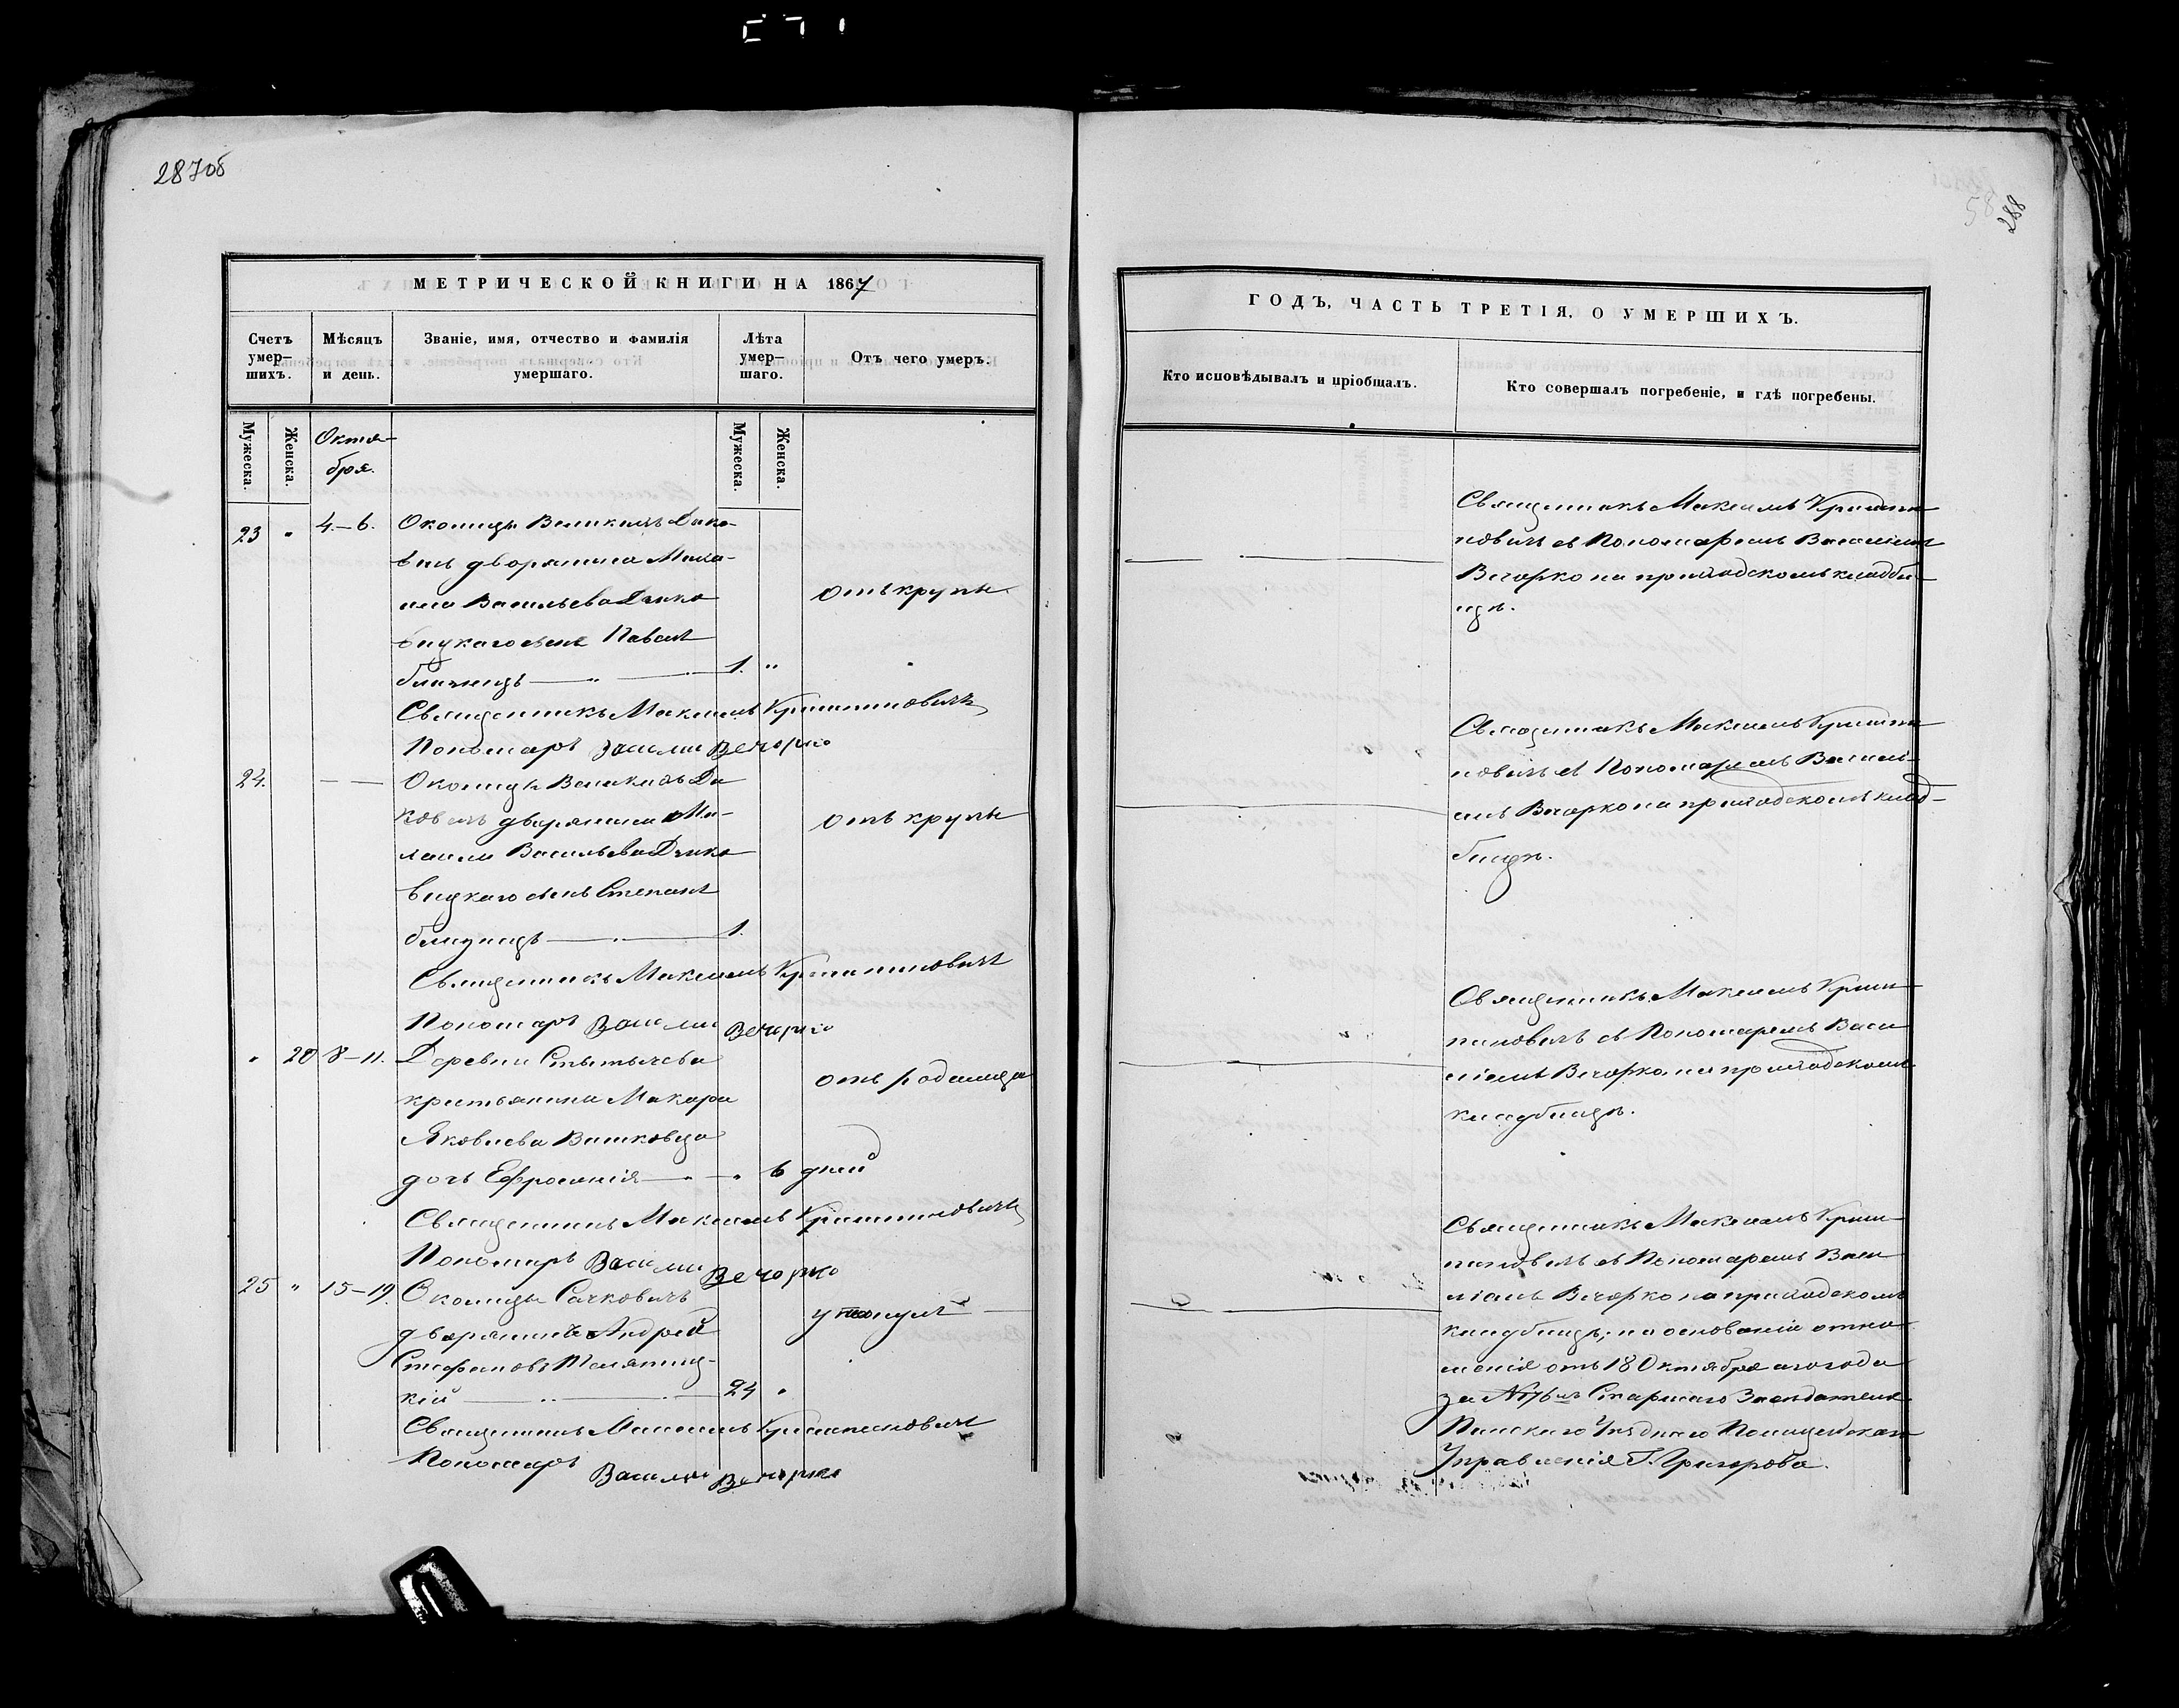 287об
МЕТРИЧЕСКОЙ КНИГИ НА 1867
Счетъ умер–шихъ.
Мѣсяцъ и день.
Званіе, имя, отчество и фамилія умершаго.
Лѣта умер–шаго.
Отъ чего умеръ.
Мужеска.
Женска.
Октя–
бря.
Мужеска.
Женска.
23 " 4–6. Околицы Великихъ Дико–
вичь дворянина Миха–
ила Васильева Дзико
вицкаго сынъ Павелъ
близнецъ 1. "
отъ крупы
Священникъ Максимъ Криштиновичъ
Пономарь Василий Вечорко
24. — — Околицы Великихъ Ди
ковичь дворянина Ми–
хаила Васильева Дзико
вицкаго сынъ Степанъ
близнецъ 1.
отъ крупы
Священникъ Максимъ Криштиновичъ
Пономарь Василий Вечорко
" 20 8–11. Деревни Стытычева
крестьянина Макара
Яковлева Вишковца
дочь Ефросинія " 6 дней
отъ родимца
Священникъ Максимъ Криштиновичъ
Пономарь Василий Вечорко
25 " 15–19. Околицы Сачковичъ
дворянинъ Андрей
Стефановъ Телятиц–
кій 24 "
утонулъ
Священникъ Максимъ Криштиновичъ
Пономарь Василий Вечорко
58
288
ГОДЪ, ЧАСТЬ ТРЕТІЯ, О УМЕРШИХЪ.
Кто исповѣдывалъ и пріобщалъ.
Кто совершалъ погребеніе, и гдѣ погребены.
Священникъ Максимъ Кришти
новичъ съ Пономаремъ Василіемъ
Вечорко на приходскомъ кладби–
щѣ.
Священникъ Максимъ Кришти
новичъ съ Пономаремъ Василі–
емъ Вечорко на приходскомъ клад–
бищѣ.
Священникъ Максимъ Криш–
тиновичъ съ Пономаремъ Васи
ліемъ Вечорко на приходскомъ
кладбищѣ.
Священникъ Максимъ Криш–
тиновичъ съ Пономаремъ Васи
ліемъ Вечорко на приходскомъ
кладбищѣ; на основаніи отно–
шенія отъ 18 Октября сего года
за № Старшаго Засѣдателя
Пинскаго Уѣзднаго Полицейскаго
Управленія Г. Григорова.